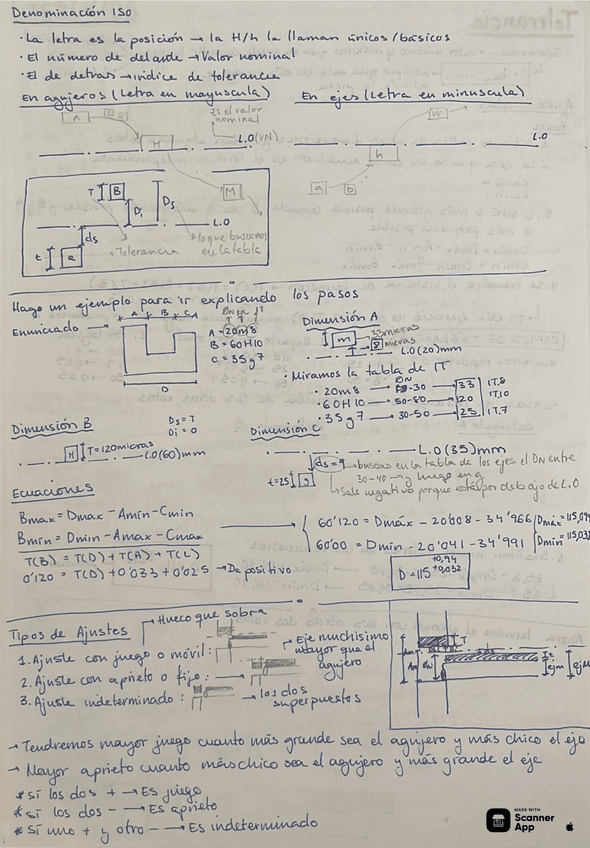 Denominación ISO
· La letra es la posición → la H/h la llaman únicos/básicos
· El número de delante → Valor nominal
· El de detras → indice de tolerancia
En agujeros (Letra en mayuscula)
En ejes (Letra en minuscula)
Es el valor
nominal
A
H
L.O (VN)
M
m
L.O
h
a b
T B
Di
Ds
L.O
ds
t a
Tolerancia
lo que buscamos
en la tabla
Hago un ejemplo para ir explicando los pasos
Enunciado
A B C
D
A = 20m8
B = 60H10
C = 35g7
· Dimensión A
m
33 micras
8 micras
L.O (20) mm
· Miramos la tabla de IT
· 20m8 → -30 → 33 IT,8
· 60H10 → 50-80 → 120 IT,10
· 35g7 → 30-50 → 25 IT,7
Dimensión B
Ds = T
Di = 0
H T=120micras
L.O (60) mm
Dimensión C
L.O (35) mm
ds = 9 → buscas en la tabla de los ejes el DN entre
30-40 → y luego en g
t=25 g
Sale negativo porque está por debajo de L.O
Ecuaciones
Bmax = Dmax - Amin - Cmin
Bmin = Dmin - Amax - Cmax
T(B) = T(D) + T(A) + T(C)
0'120 = T(D) + 0'033 + 0'025 → Da positivo
60'120 = Dmáx - 20'008 - 34'966
60'00 = Dmin - 20'041 - 34'991
D = 115
Tipos de Ajustes
Hueco que sobra
1. Ajuste con juego o móvil:
Eje muchisimo
mayor que el
agujero
2. Ajuste con aprieto o fijo:
3. Ajuste indeterminado:
los dos
superpuestos
→ Tendremos mayor juego cuanto más grande sea el agujero y más chico el eje
→ Mayor aprieto cuanto más chico sea el agujero y más grande el eje
* si los dos + → Es juego
* si los dos - → Es aprieto
* si uno + y otro - → Es indeterminado
MADE WITH
Scanner
App